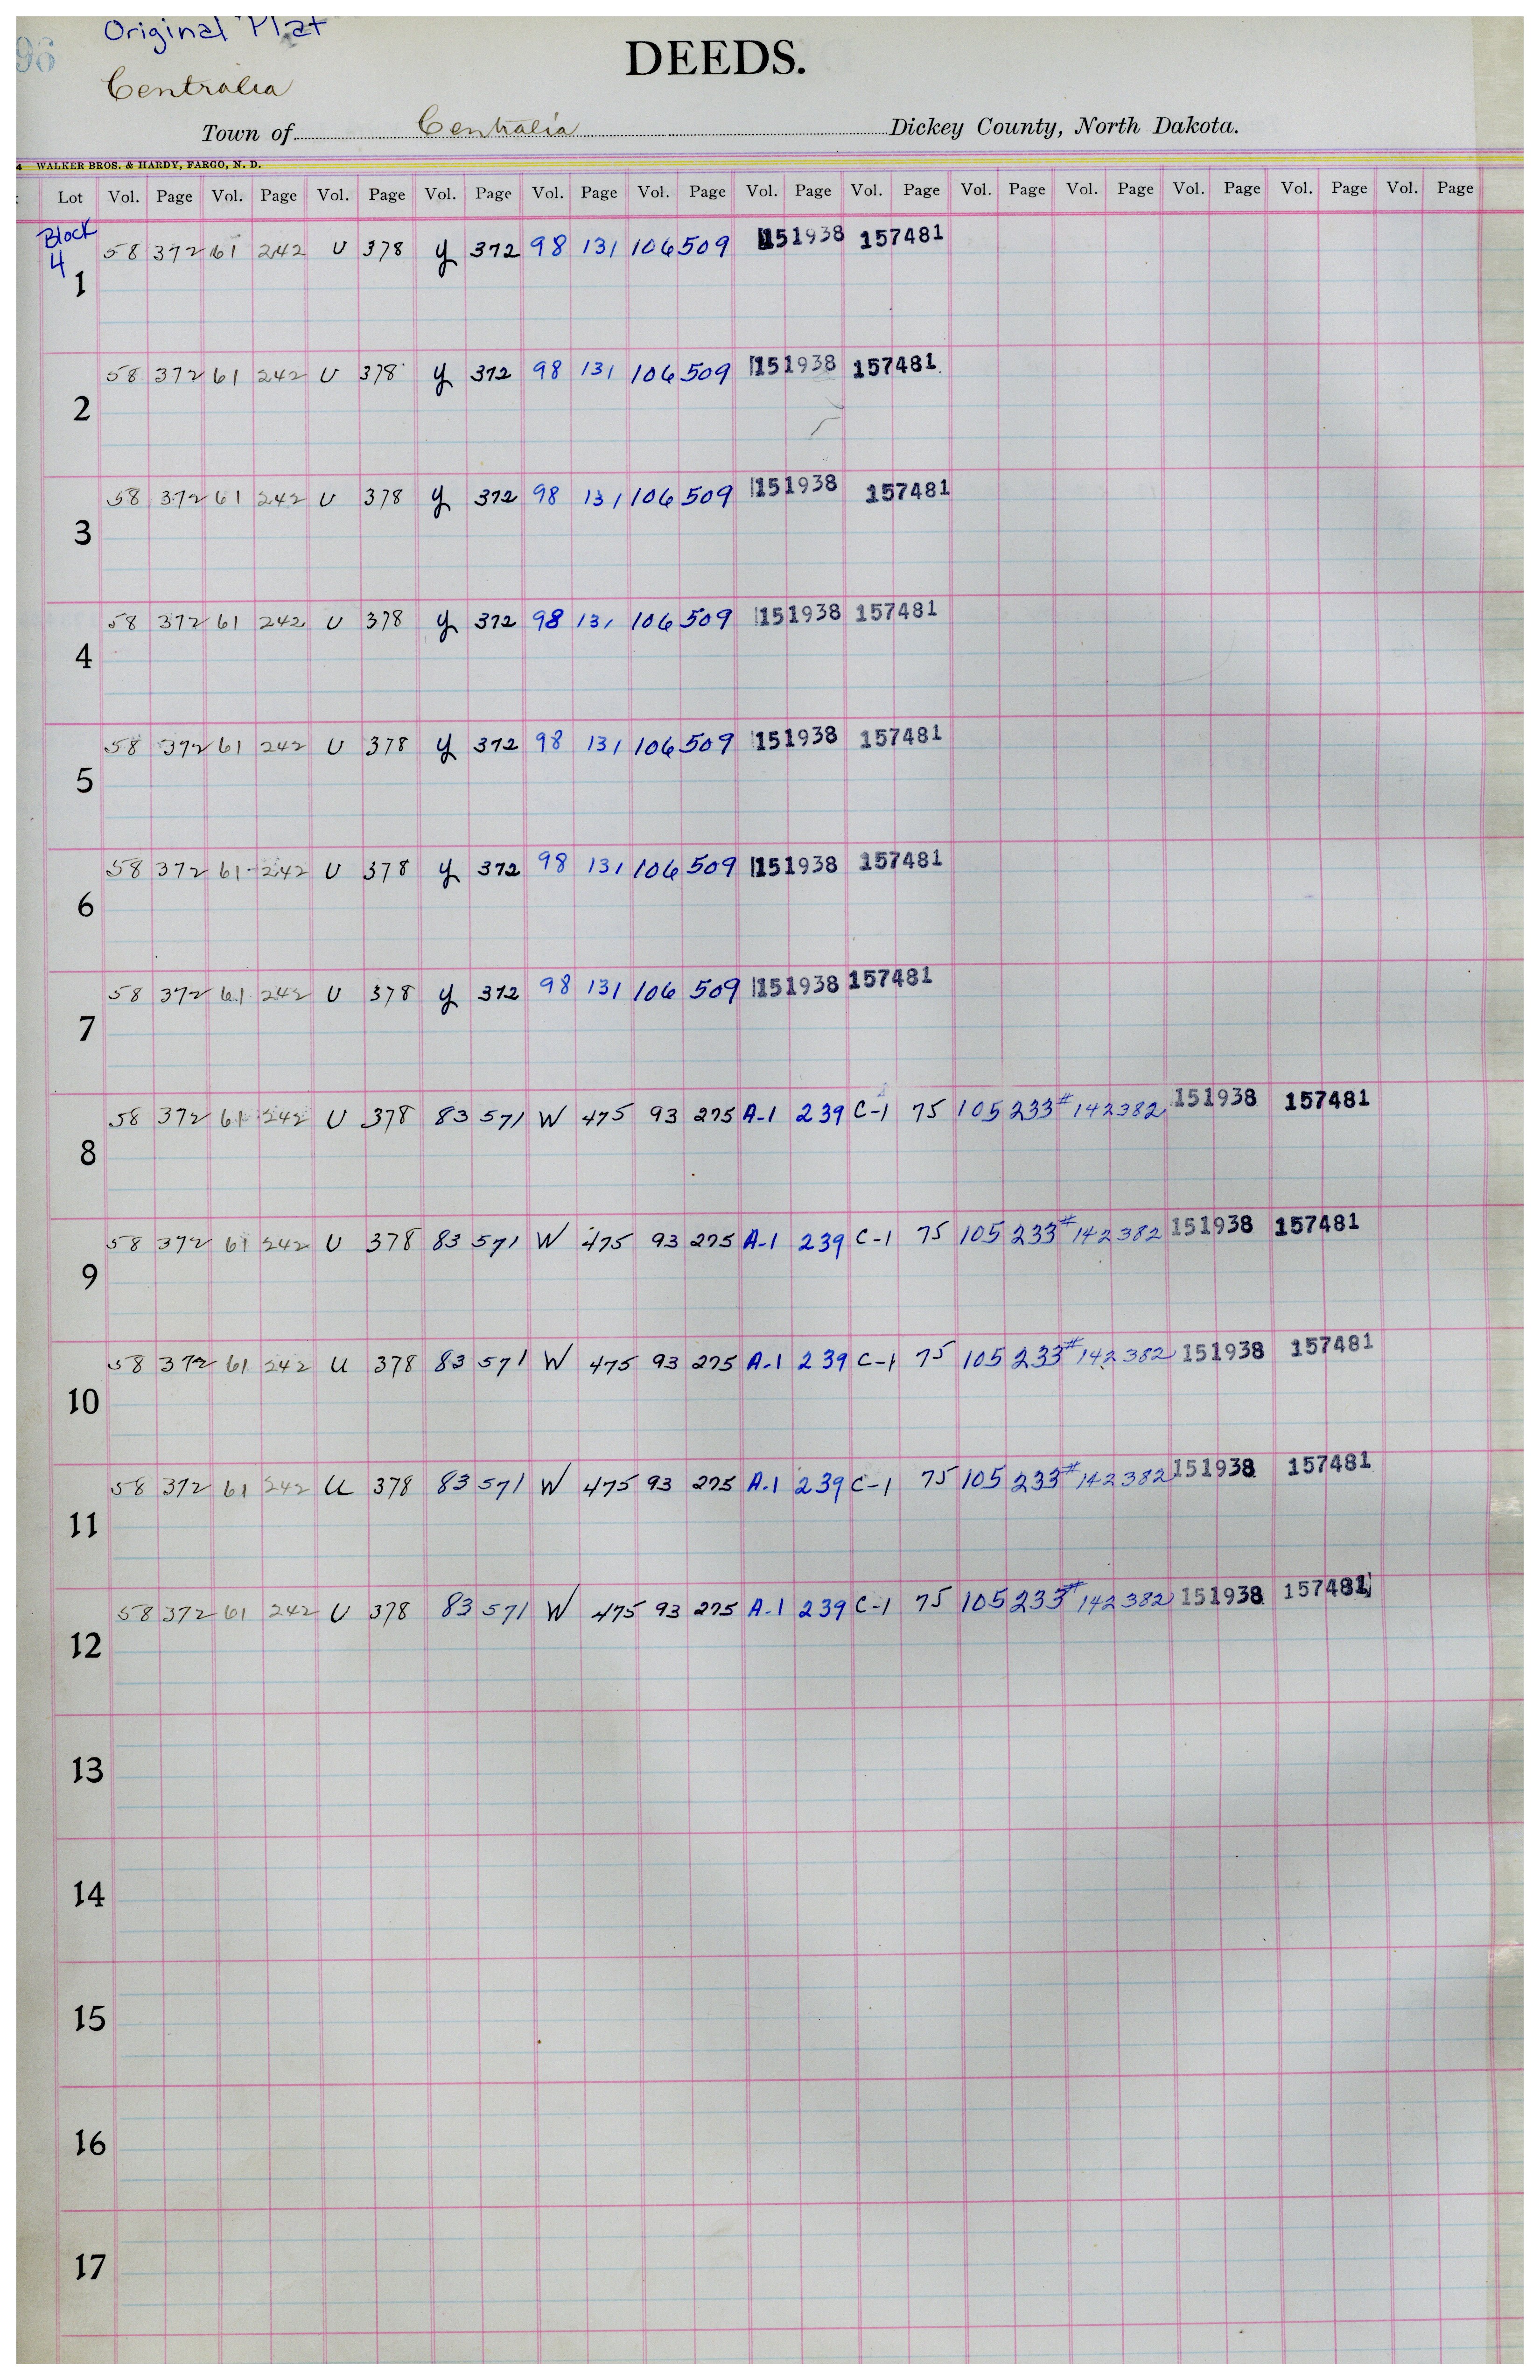 Original Plat
96
DEEDS.
Centralia
Town of Centralia Dickey County, North Dakota.
4 WALKER BROS. & HARDY, FARGO, N. D.
Lot Vol. Page Vol. Page Vol. Page Vol. Page Vol. Page Vol. Page Vol. Page Vol. Page Vol. Page Vol. Page Vol. Page Vol. Page Vol. Page
Block
4
58 372 61 242 U 378 y 372 98 131 106 509 151938 157481
1
58 372 61 242 U 378 y 372 98 131 106 509 151938 157481
2
58 372 61 242 U 378 y 372 98 131 106 509 151938 157481
3
58 372 61 242 U 378 y 372 98 131 106 509 151938 157481
4
58 372 61 242 U 378 y 372 98 131 106 509 151938 157481
5
58 372 61 242 U 378 y 372 98 131 106 509 151938 157481
6
58 372 61 242 U 378 y 372 98 131 106 509 151938 157481
7
58 372 61 242 U 378 83 571 W 475 93 275 A-1 239 C-1 75 105 233 #142382 151938 157481
8
58 372 61 242 U 378 83 571 W 475 93 275 A-1 239 C-1 75 105 233 #142382 151938 157481
9
58 372 61 242 U 378 83 571 W 475 93 275 A-1 239 C-1 75 105 233 #142382 151938 157481
10
58 372 61 242 U 378 83 571 W 475 93 275 A-1 239 C-1 75 105 233 #142382 151938 157481
11
58 372 61 242 U 378 83 571 W 475 93 275 A-1 239 C-1 75 105 233 #142382 151938 157481
12
13
14
15
16
17